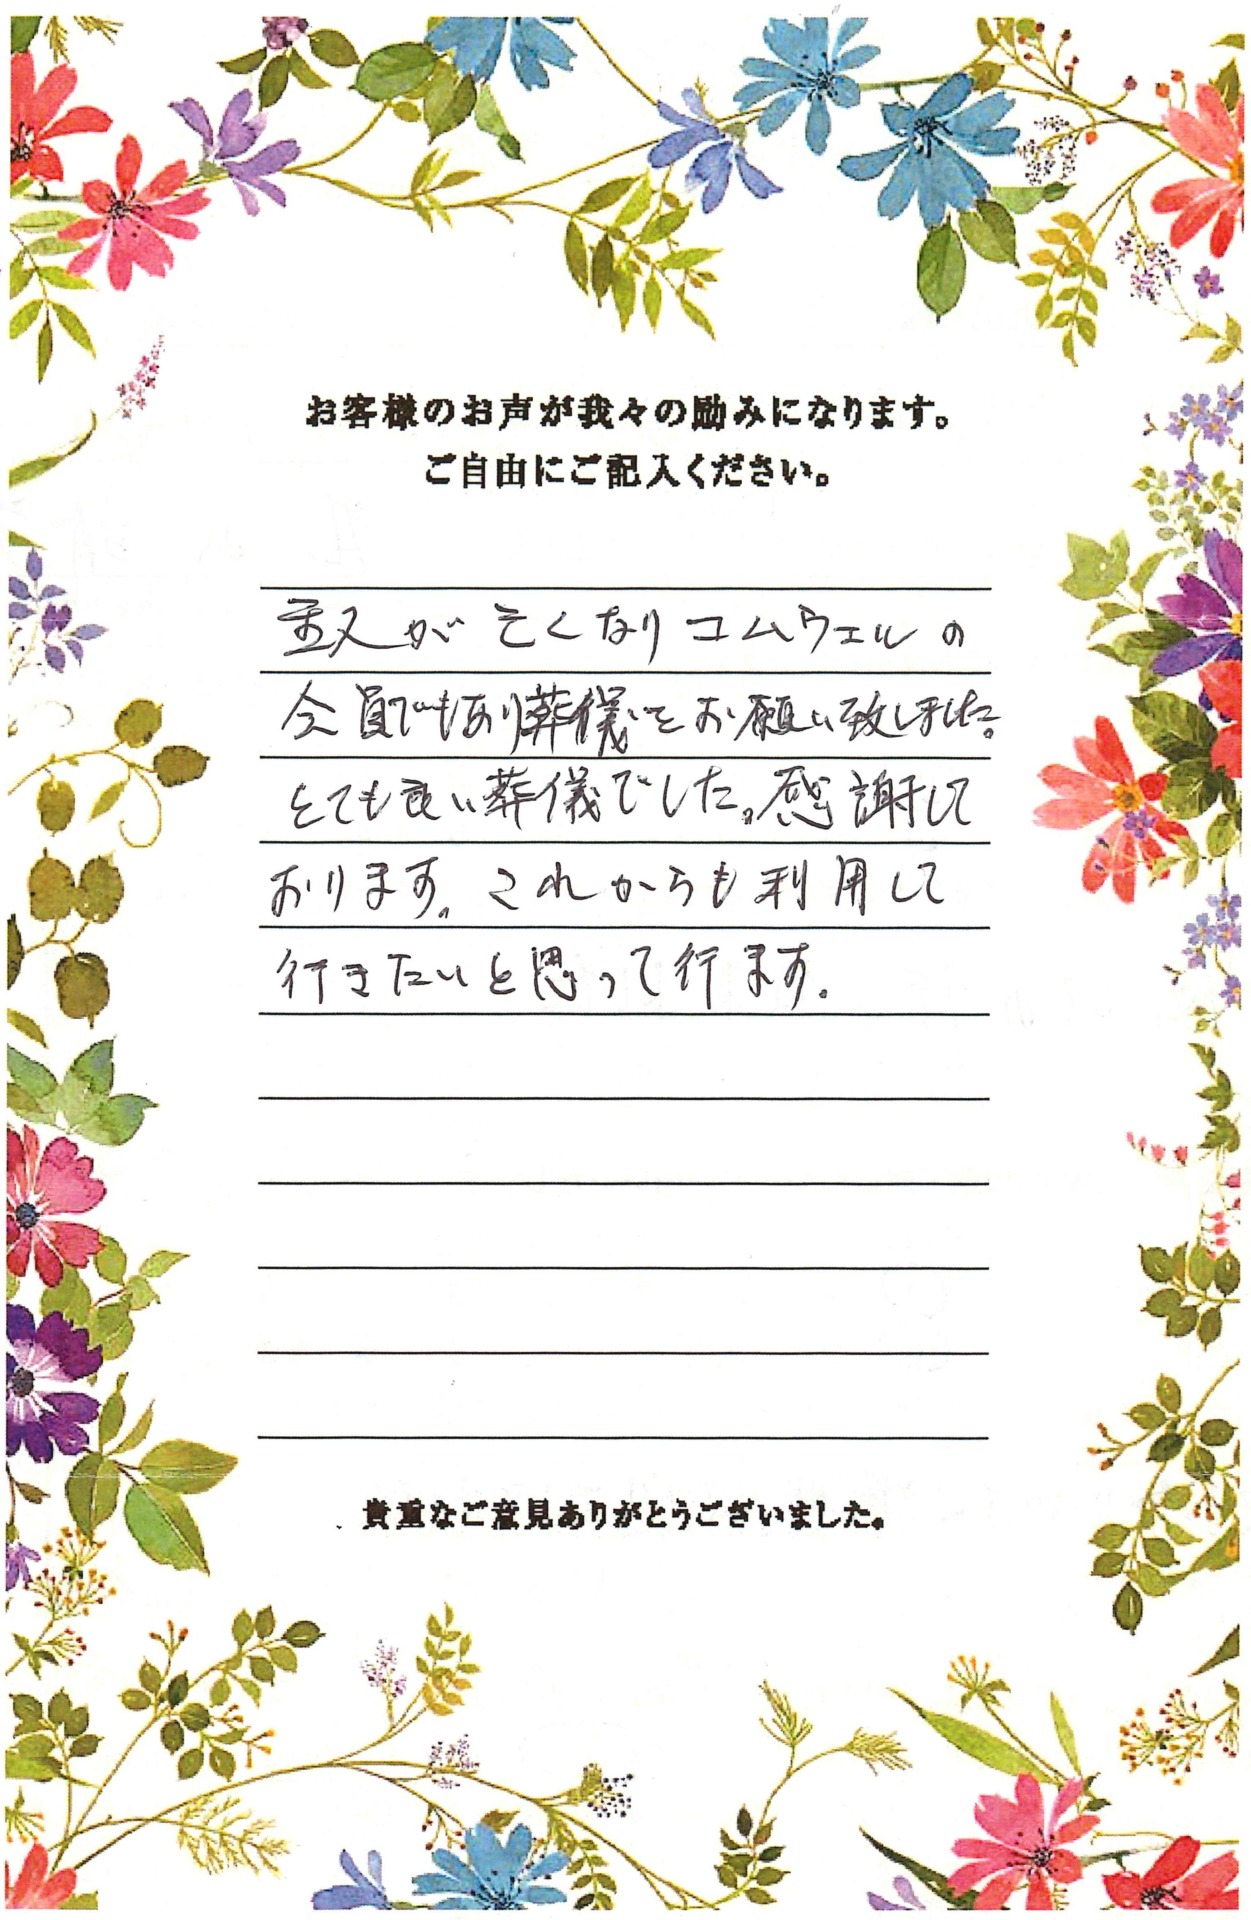 お客様のお声が我々の励みになります。
ご自由にご記入ください。
が亡くなりコムウェルの
会員でもあり葬儀をお願い致しました。
とても良い葬儀でした。感謝して
おります。これからも利用して
行きたいと思って行ます。
貴重なご意見ありがとうございました。